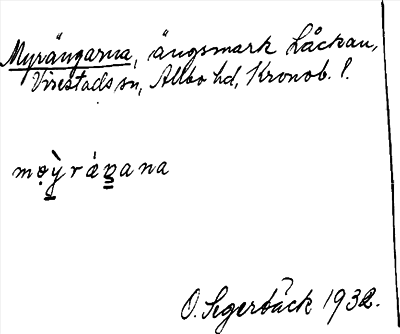 Myrängarna, ängsmark Låckau,
Virestads sn, Allbo hd, Kronob. l.
mo̤ỳ̤ráṉana
O. Segerbäck 1932.